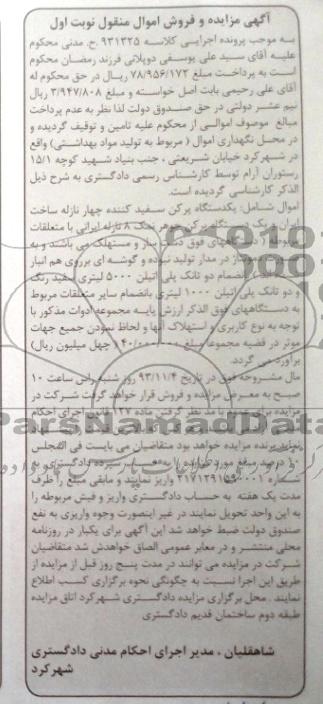 آگهی مزایده و فروش اموال منقول نوبت اول
به موجب پرونده اجرایی کلاسه ۹۳۱۳۲۵ ح. مدنی محکوم
علیه آقای سید علی یوسفی دوپلانی فرزند رمضان محکوم
است به پرداخت مبلغ ۷۸/۹۵۶/۱۷۲ ریال در حق محکوم له
آقای علی رحیمی بابت اصل خواسته و مبلغ ۳/۹۴۷/۸۰۸ ریال
نیم عشر دولتی در حق صندوق دولت لذا نظر به عدم پرداخت
مبالغ موصوف اموالی از محکوم علیه تامین و توقیف گردیده و
در محل نگهداری اموال ( مربوط به تولید مواد بهداشتی) واقع
در شهرکرد خیابان شریعتی ، جنب بنیاد شهید کوچه ۱۵/۱
رستوران آرام توسط کارشناس رسمی دادگستری به شرح ذیل
الذکر کارشناسی گردیده است.
اموال شامل: یکدستگاه پرکن سفید کننده چهار نازله ساخت
ایران و یک دستگاه پرکن جوهر نمک ۸ نازله ایرانی با متعلقات
مربوطه ( دستگاههای فوق دست ساز و مستهلک می باشند و به
در مدار تولید نبوده و گوشه ای برروی هم انبار
بانضمام دو تانک پلی اتیلن ۵۰۰۰ لیتری سفید رنگ
و دو تانک پلی اتیلن ۱۰۰۰ لیتری بانضمام سایر متعلقات مربوط
به دستگاههای فوق الذکر ارزش پایه مجموعه ادوات مذکور با
توجه به نوع کاربری و استهلاک آنها و لحاظ نمودن جمیع جهات
موثر در قضیه مجموعا مبلغ ۴۰/۰۰۰/۰۰۰ چهل میلیون ریال)
برآورد می گردد.
مال مشروحه فوق در تاریخ ۹۳/۱۱/۴ روز شنبه راس ساعت ۱۰
صبح به معرض مزایده و فروش قرار خواهد گرفت شرکت در
مزایده برای عموم با مد نظر گرفتن ماده ۱۲۷ قانون اجرای احکام
نماید برنده مزایده خواهد بود متقاضیان می بایست فی المجلس
۱۰ درصد مبلغ مورد مزایده را به سپرده دادگستری به
شماره ۲۱۷۱۲۹۱۵۹۰۰۰۱ واریز نمایند و مابقی مبلغ را ظرف
مدت یک هفته به حساب دادگستری واریز و فیش مربوطه را
به این واحد تحویل نمایند در غیر اینصورت وجوه واریزی به نفع
صندوق دولت ضبط خواهد شد این آگهی برای یکبار در روزنامه
محلی منتشر و در معابر عمومی الصاق خواهدش شد متقاضیان
شرکت در مزایده می توانند در مدت پنج روز قبل از مزایده از
طریق این اجرا نسبت به چگونگی نحوه برگزاری کسب اطلاع
نمایند . محل برگزاری مزایده دادگستری شهرکرد اتاق مزایده
طبقه دوم ساختمان قدیم دادگستری
شاهقلیان ، مدیر اجرای احکام مدنی دادگستری
شهرکرد
ParsNamadData